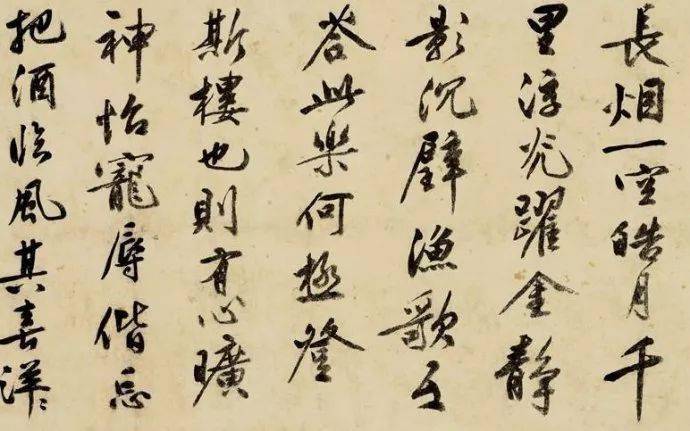 長烟一空皓月千
里浮光躍金静
影沉璧漁歌互
答此樂何極登
斯樓也則有心曠
神怡寵辱偕忘
把酒臨風其喜洋〻